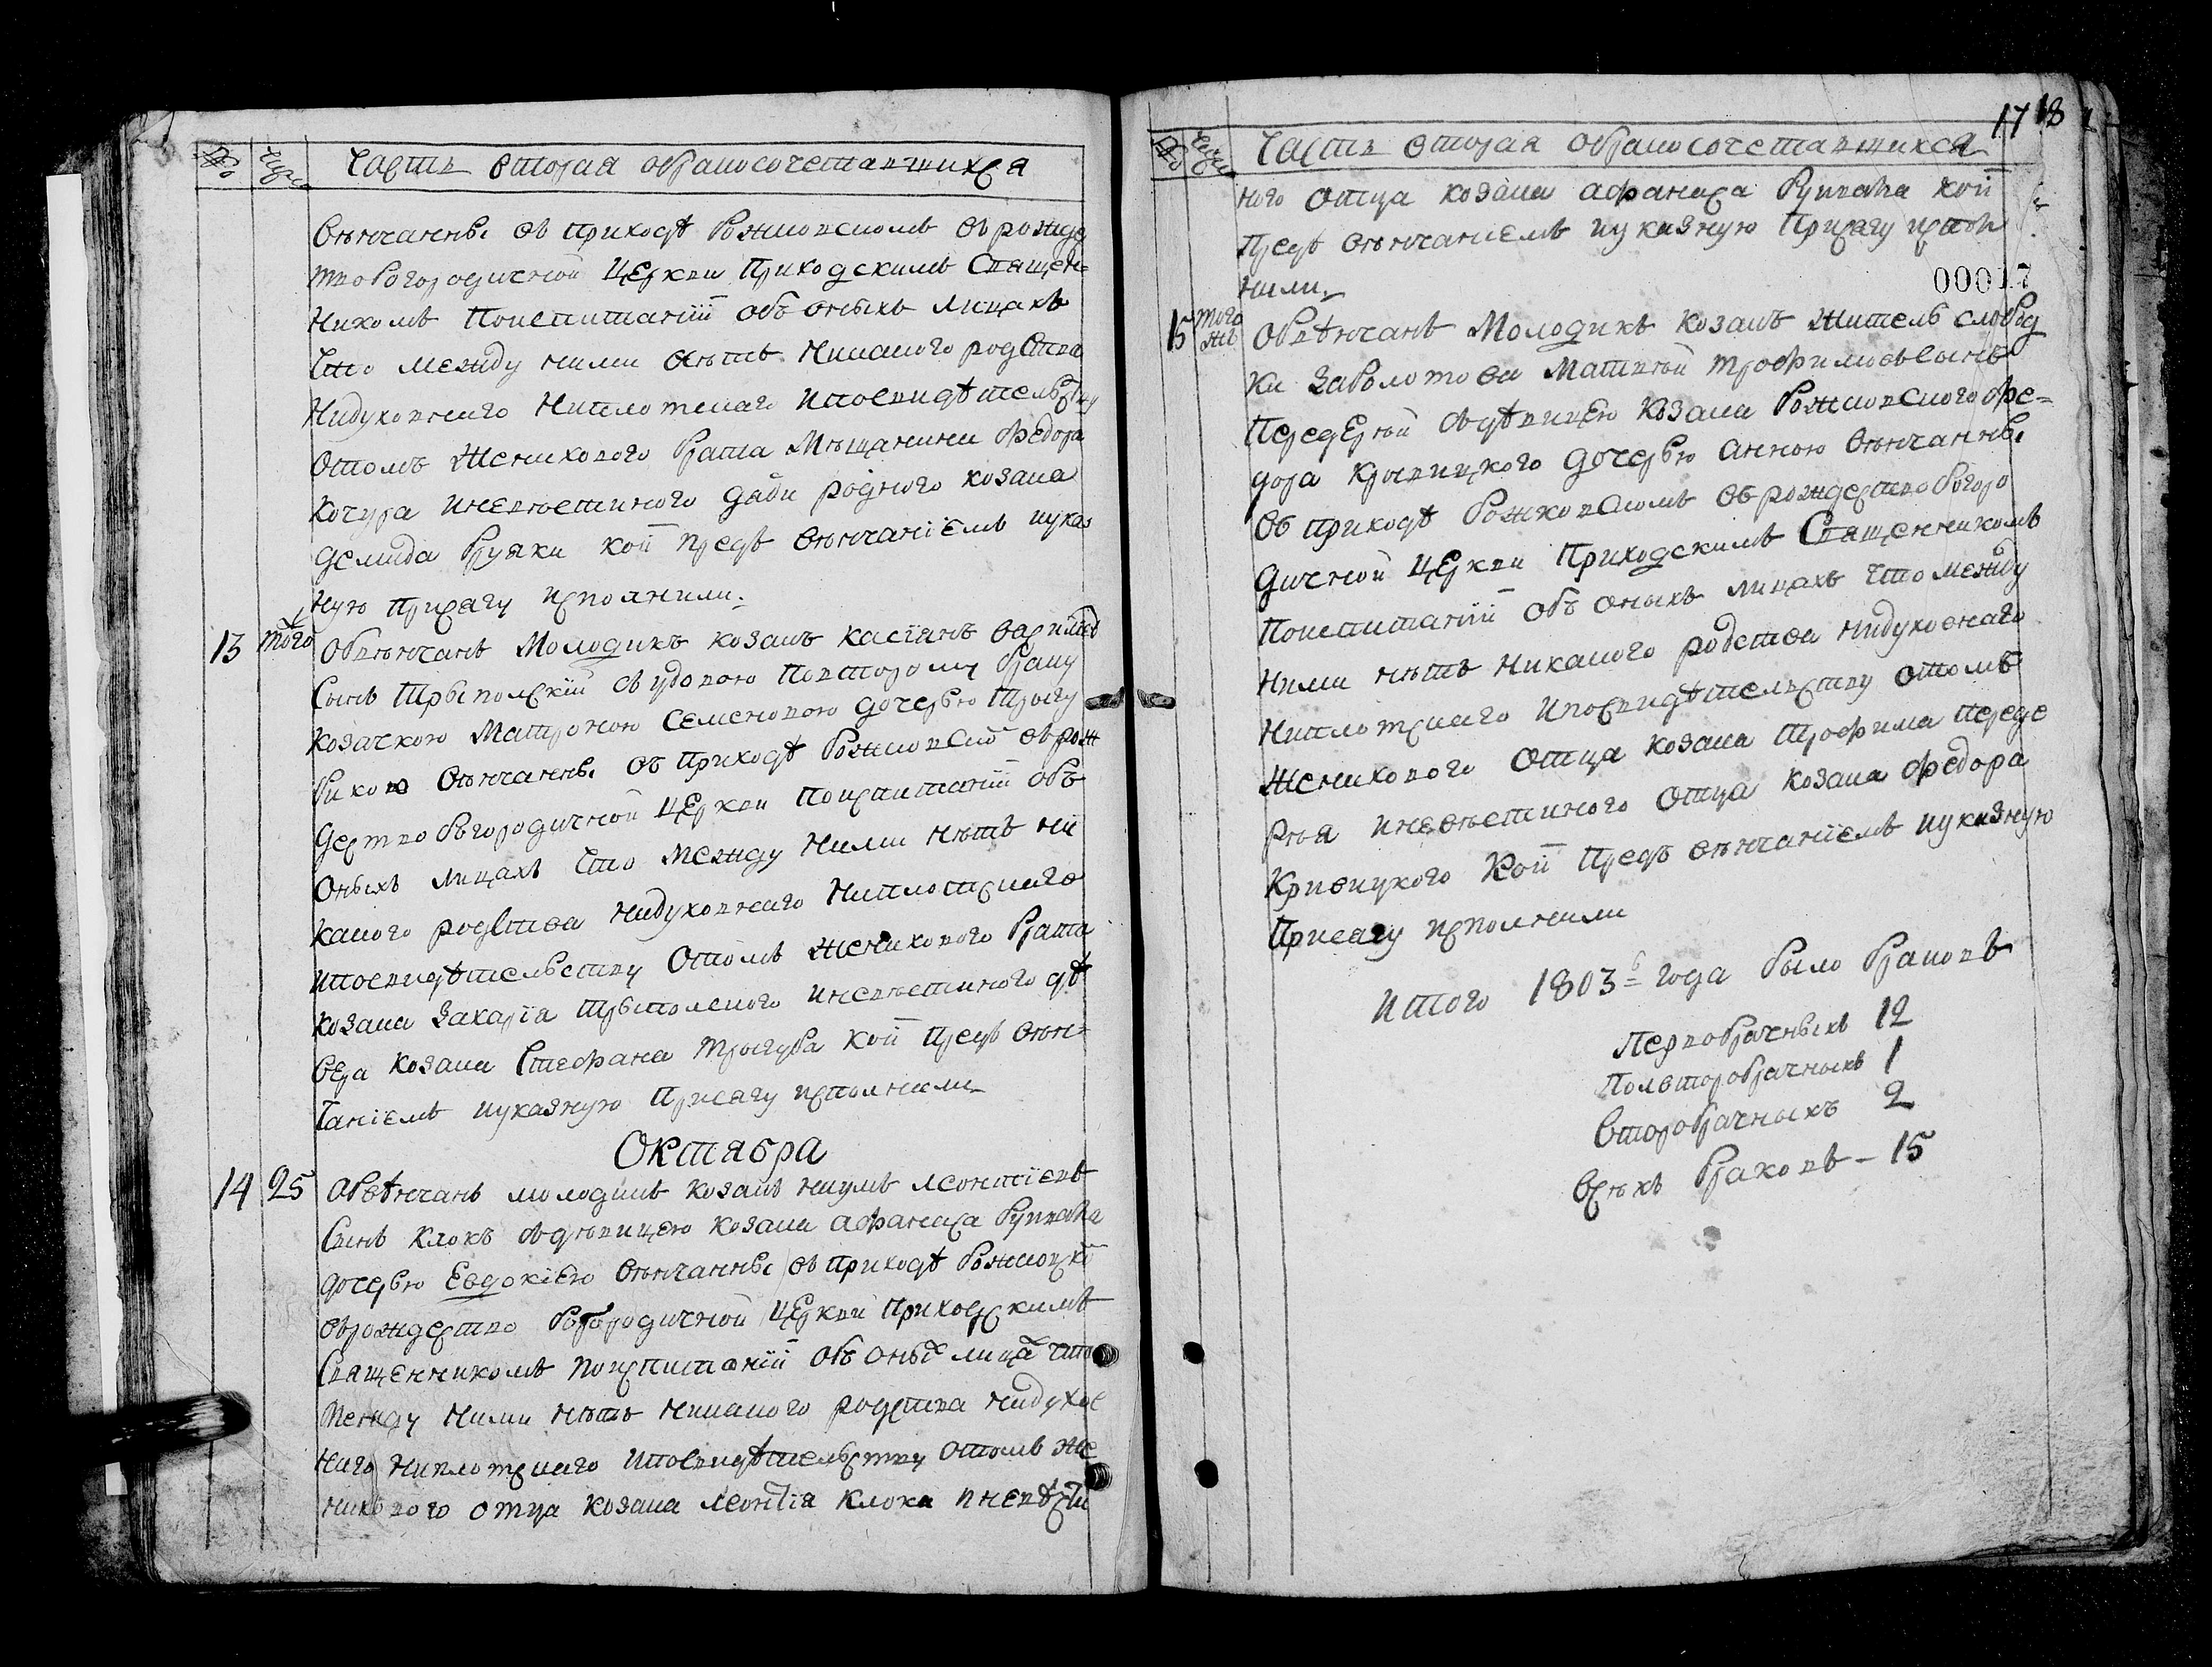 Часть вторая обракосочетавшихся
Вѣнчанны въ приходѣ Рожновскомъ врожде
ство Богородичной церкви приходскимъ священ=
никомъ поиспитаніи объ оныхъ лицахъ
что между ними нѣтъ никакого родства
нидуховнаго ниплотскаго ипосвидѣтельству
отомъ женихового брата мѣщанина федора
Кочура иневѣстиного дяди родного козака
демида кои предъ вѣнчаніемъ указ
ную присягу исполнили.
13 того Обвѣнчанъ молодикъ козакъ касіянъ
сынъ Трыполскій звдовою повторому браку
козачкою Матроною Семеновою дочерью Трыгу
бикою вѣнчанны въ приходѣ Рожновско врож
дество богородичной церкви поиспитаніи объ
оныхъ лицахъ что между ними нѣтъ ни
какого родства нидуховнаго ниплотскаго
ипосвидѣтельству отомъ женихового брата
козака Захарія Трыполского иневѣстиного дѣ
вера козака Стефана Трыгуба кои предъ вѣн=
чаніемъ иуказную присягу исполнили
Октября
14 25 Обвѣнчанъ молодикъ козакъ наумъ леонтіевъ
сынъ Клокъ здѣвицею козака афанаса
дочерью Евдокіею вѣнчанны въ приходѣ Рожновско
врождество богородичной церкви приходскимъ
священникомъ поиспитаніи объ оныхъ лицахъ что
между ними нѣтъ никакого родства нидухов
наго ниплотскаго ипосвидѣтельству отомъ же
нихового отца козака леонтія клока иневѣсти
17 18
Часть вторая обракосочетавшихся
ного отца козака афанаса кои
предъ вѣнчаніемъ иуказную присягу исполн
нили
00017
15 того жъ Обвѣнчанъ молодикъ козакъ житель слобод
ки Заболотова Матвѣй трофимовъ сынъ
Передерѣй здѣвицею козака Рожновского фе=
дора Крывицкого дочерью анною вѣнчанны
въ приходѣ Рожновскомъ врождество богоро
дичной церкви приходскимъ священникомъ
поиспитаніи объ оныхъ лицахъ что между
ними нѣтъ никакого родства нидуховнаго
ниплотскаго ипосвидѣтельству отомъ
женихового отца козака Трофима переде
рѣя иневѣстиного отца козака федора
Кривицкого кои предъ вѣнчаніемъ иуказную
присягу исполнили
Итого 1803 года было браковъ
Первобрачныхъ 12
Полвторобрачныхъ 1
Второбрачныхъ 2
Всѣхъ браковъ - 15